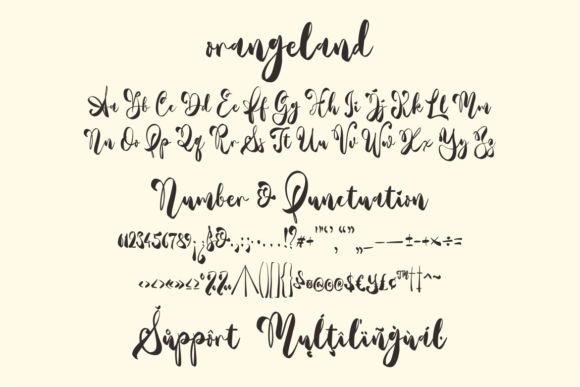 orangeland
Aa Bb Cc Dd Ee Ff Gg Hh Ii Jj Kk Ll Mm
Nn Oo Pp Qq Rr Ss Tt Uu Vv Ww Xx Yy Zz
Number & Punctuation
0123456789¡¿&.,:;·….!?#+"'‘’“”_–—±-+×÷=
‹›<>«»≤≥°%‰/\()[]{}$¢£¥€™†‡^~
Šůppört Mųļţïľïñğùáĺ